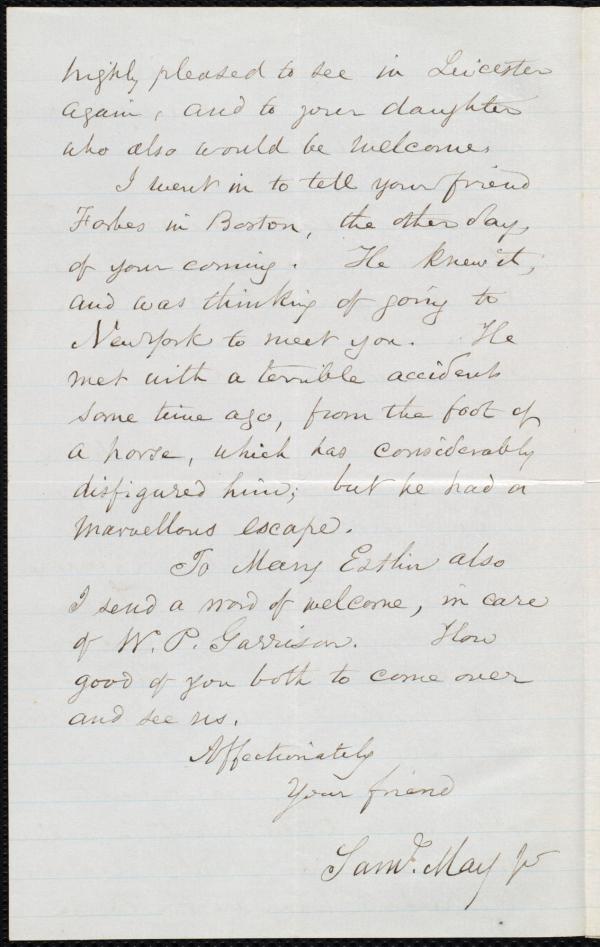 highly pleased to see in Leicester
again, and to your daughter
who also would be welcome.
I went in to tell your friend
Forbes in Boston, the other day,
of your coming. He knew it,
and was thinking of going to
New York to meet you. He
met with a terrible accident
some time ago, from the foot of
a horse, which has considerably
disfigured him; but he had a
marvellous escape.
To Mary Estlin also
I send a word of welcome, in care
of W. P. Garrison. How
good of you both to come over
and see us.
Affectionately
Your friend
Saml. May Jr